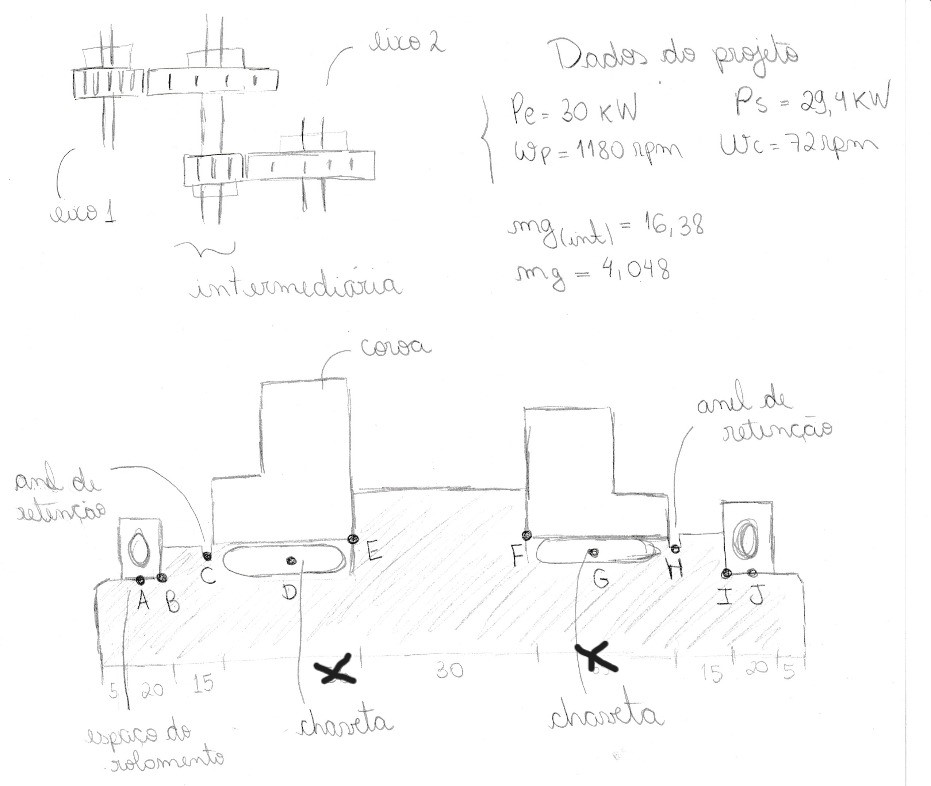 eixo 2
eixo 1
intermediária
Dados do projeto
Pe = 30 KW
Ps = 29,4 KW
Wp = 1180 rpm
Wc = 72 rpm
mg(int) = 16,38
mg = 4,048
coroa
anel de
retenção
anel de
retenção
A
B
C
D
E
F
G
H
I
J
5
20
15
30
15
20
5
espaço do
rolamento
chaveta
chaveta